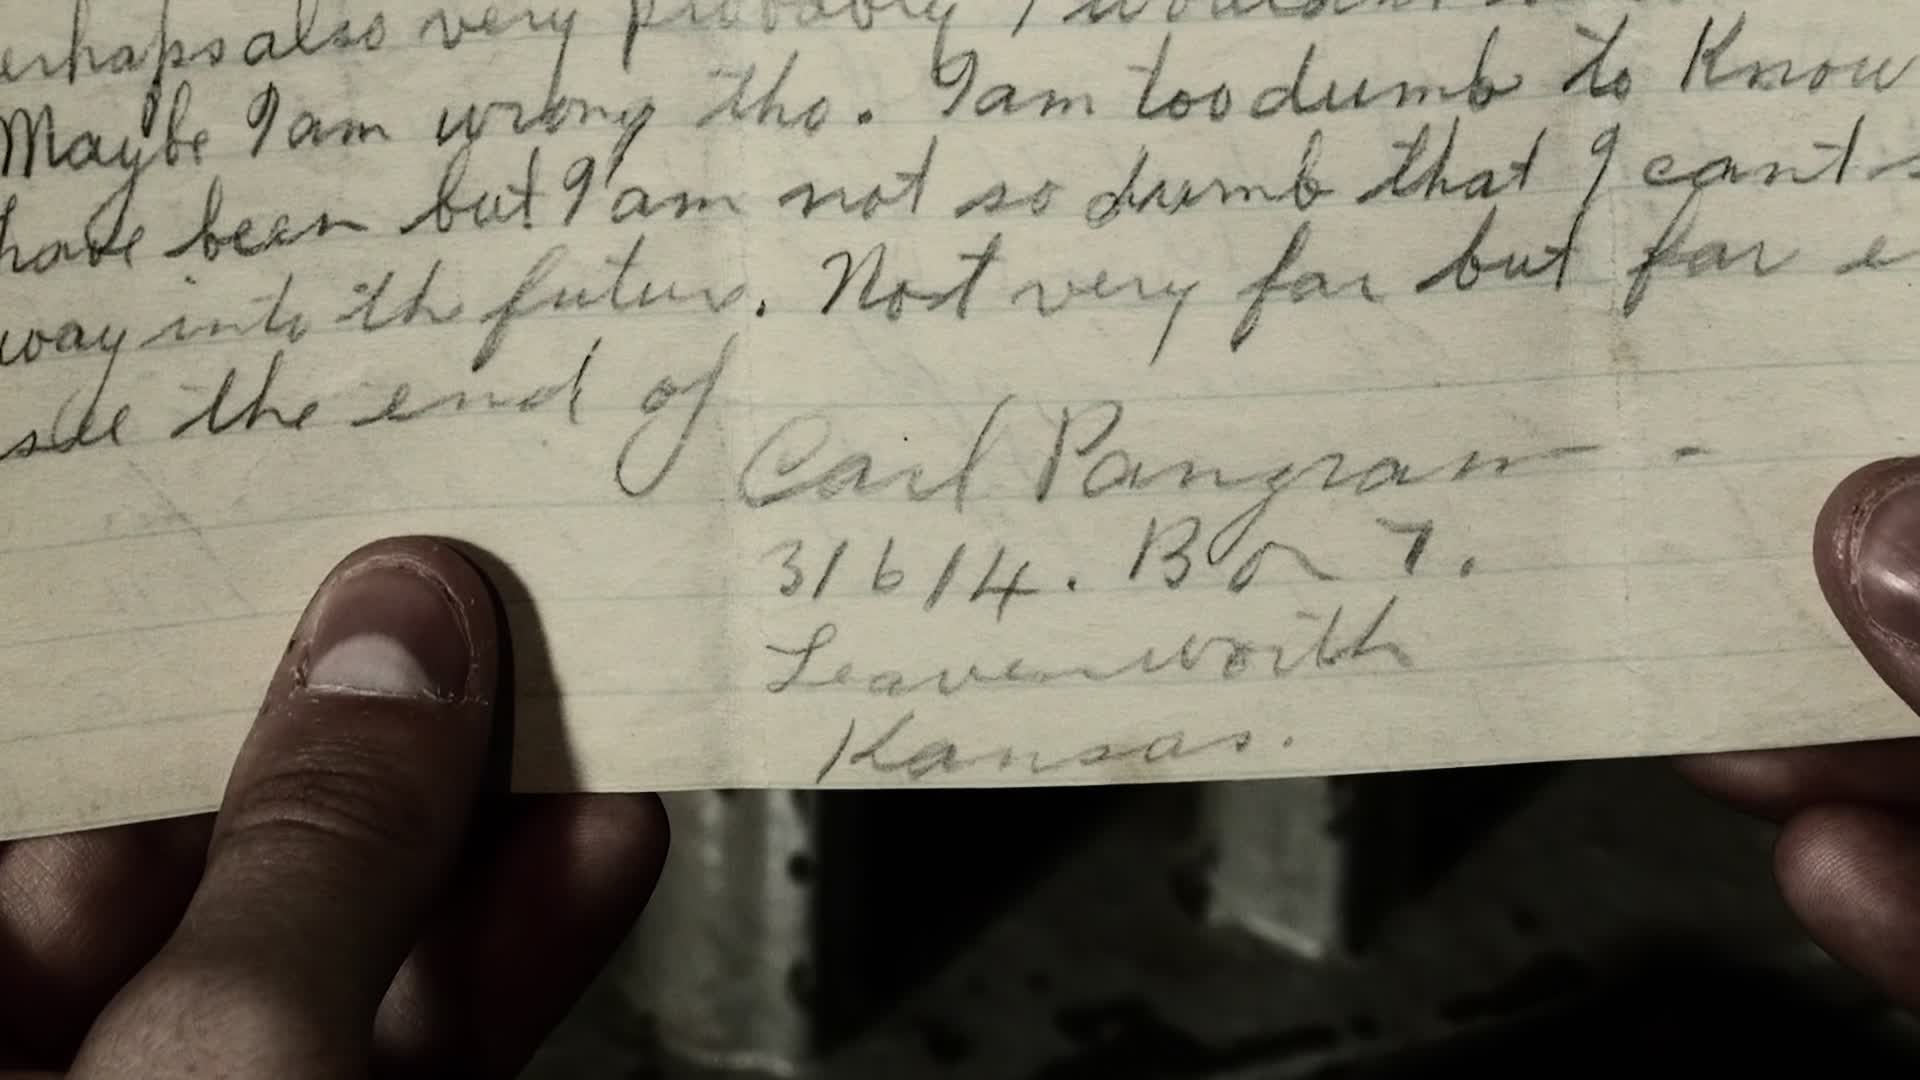 erhaps also very probably I wouldn't
Maybe I am wrong tho. I am too dumb to Know
have been but I am not so dumb that I can't s
way into the future. Not very far but far e
see the end of
Carl Panzram -
31614. Box 7.
Leavenworth
Kansas.